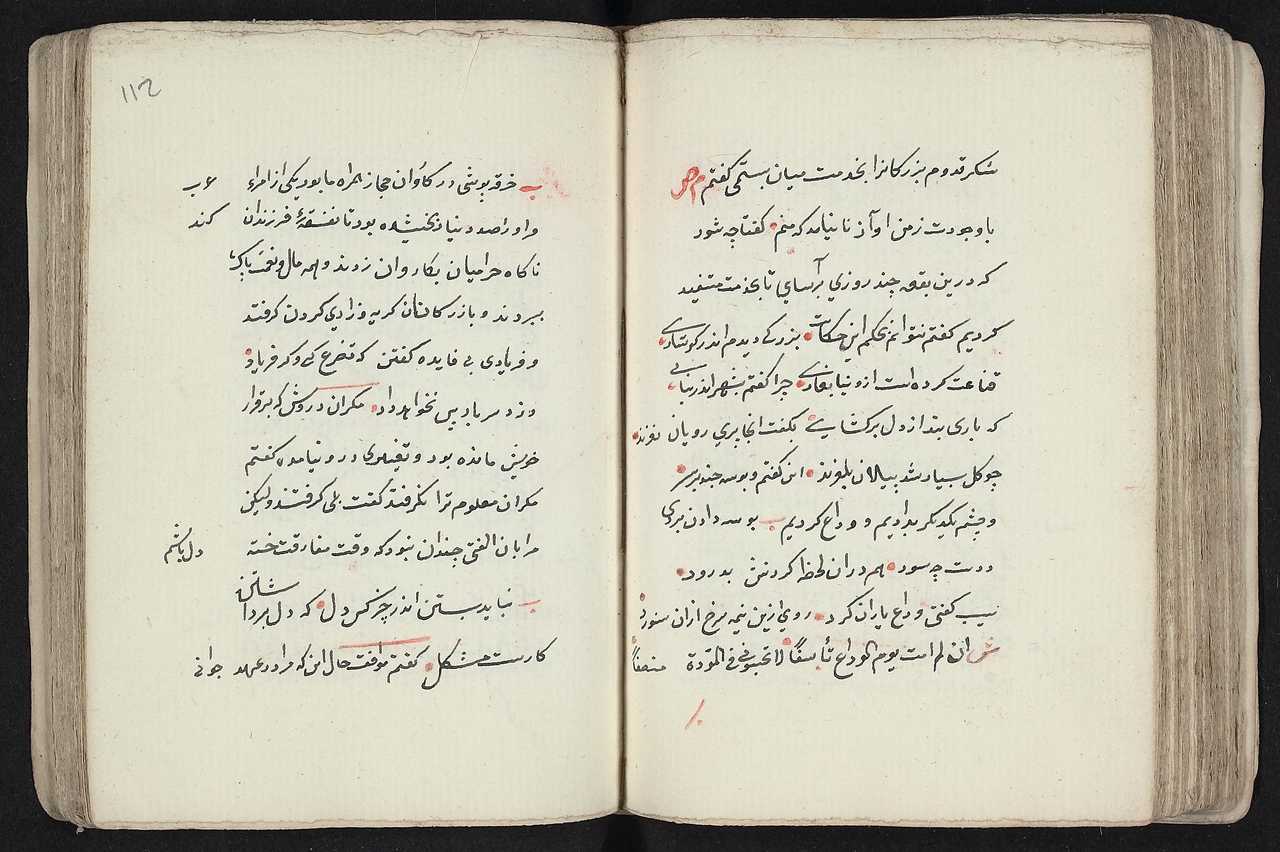 شکر قدوم بزرکانرا بخدمت میان بستمی کفتم
با وجودت زمن اواز نیامد که منم کفتا چه شود
که درین بقعه چند روزي برآساي تا بخدمت مستفید
کردیم کفتم نتوانم بحکم این حکایت بزرکی دیدم اندر کوهساري
قناعت کرده است از دنیا بغاري چرا کفتم بشهر اندر نیایی
که باری بند از دل برکشایي بکفت انجا پري رویان نغزند
چو کل بسیار شد پیلان بلغزند این کفتم و بوسه چند بر سر
و چشم یکدیکر بدادیم و وداع کردیم بوسه دادن بروی
دوست چه سود هم دران لحظه کردنش بدرود
سیب کفتی وداع یاران کرد روي ازین نیمه سرخ ازان سو زرد
ان لم امت یوم الوداع تأسفًا لا تحسبونی فی المودة منصفًا
112
خرقه پوشی در کاروان حجاز همراه ما بود یکی از امراء عرب
مر او را صد دینار بخشیده بود تا نفقهٔ فرزندان کند
ناکاه حرامیان بکاروان زدند و همه مال و نعمت پاک
ببردند و بازرکانان کریه و زاري کردن کرفتند
و فریادی بی فایده کفتن که تضرع کنی و کر فریاد
دزد زر باز پس نخواهد داد مکر ان درویش که برقرار
خویش مانده بود و تغییري درو نیامده کفتم
مکر ان معلوم ترا نکرفتند کفت بلی کرفتند ولیکن
مرا بان الفتی چندان نبود که وقت مفارقت خسته دل باشم
نباید بستن اندر چیز کس دل که دل برداشتن
کاریست مشکل کفتم موافقت حال این که مرا در عهد جوانی